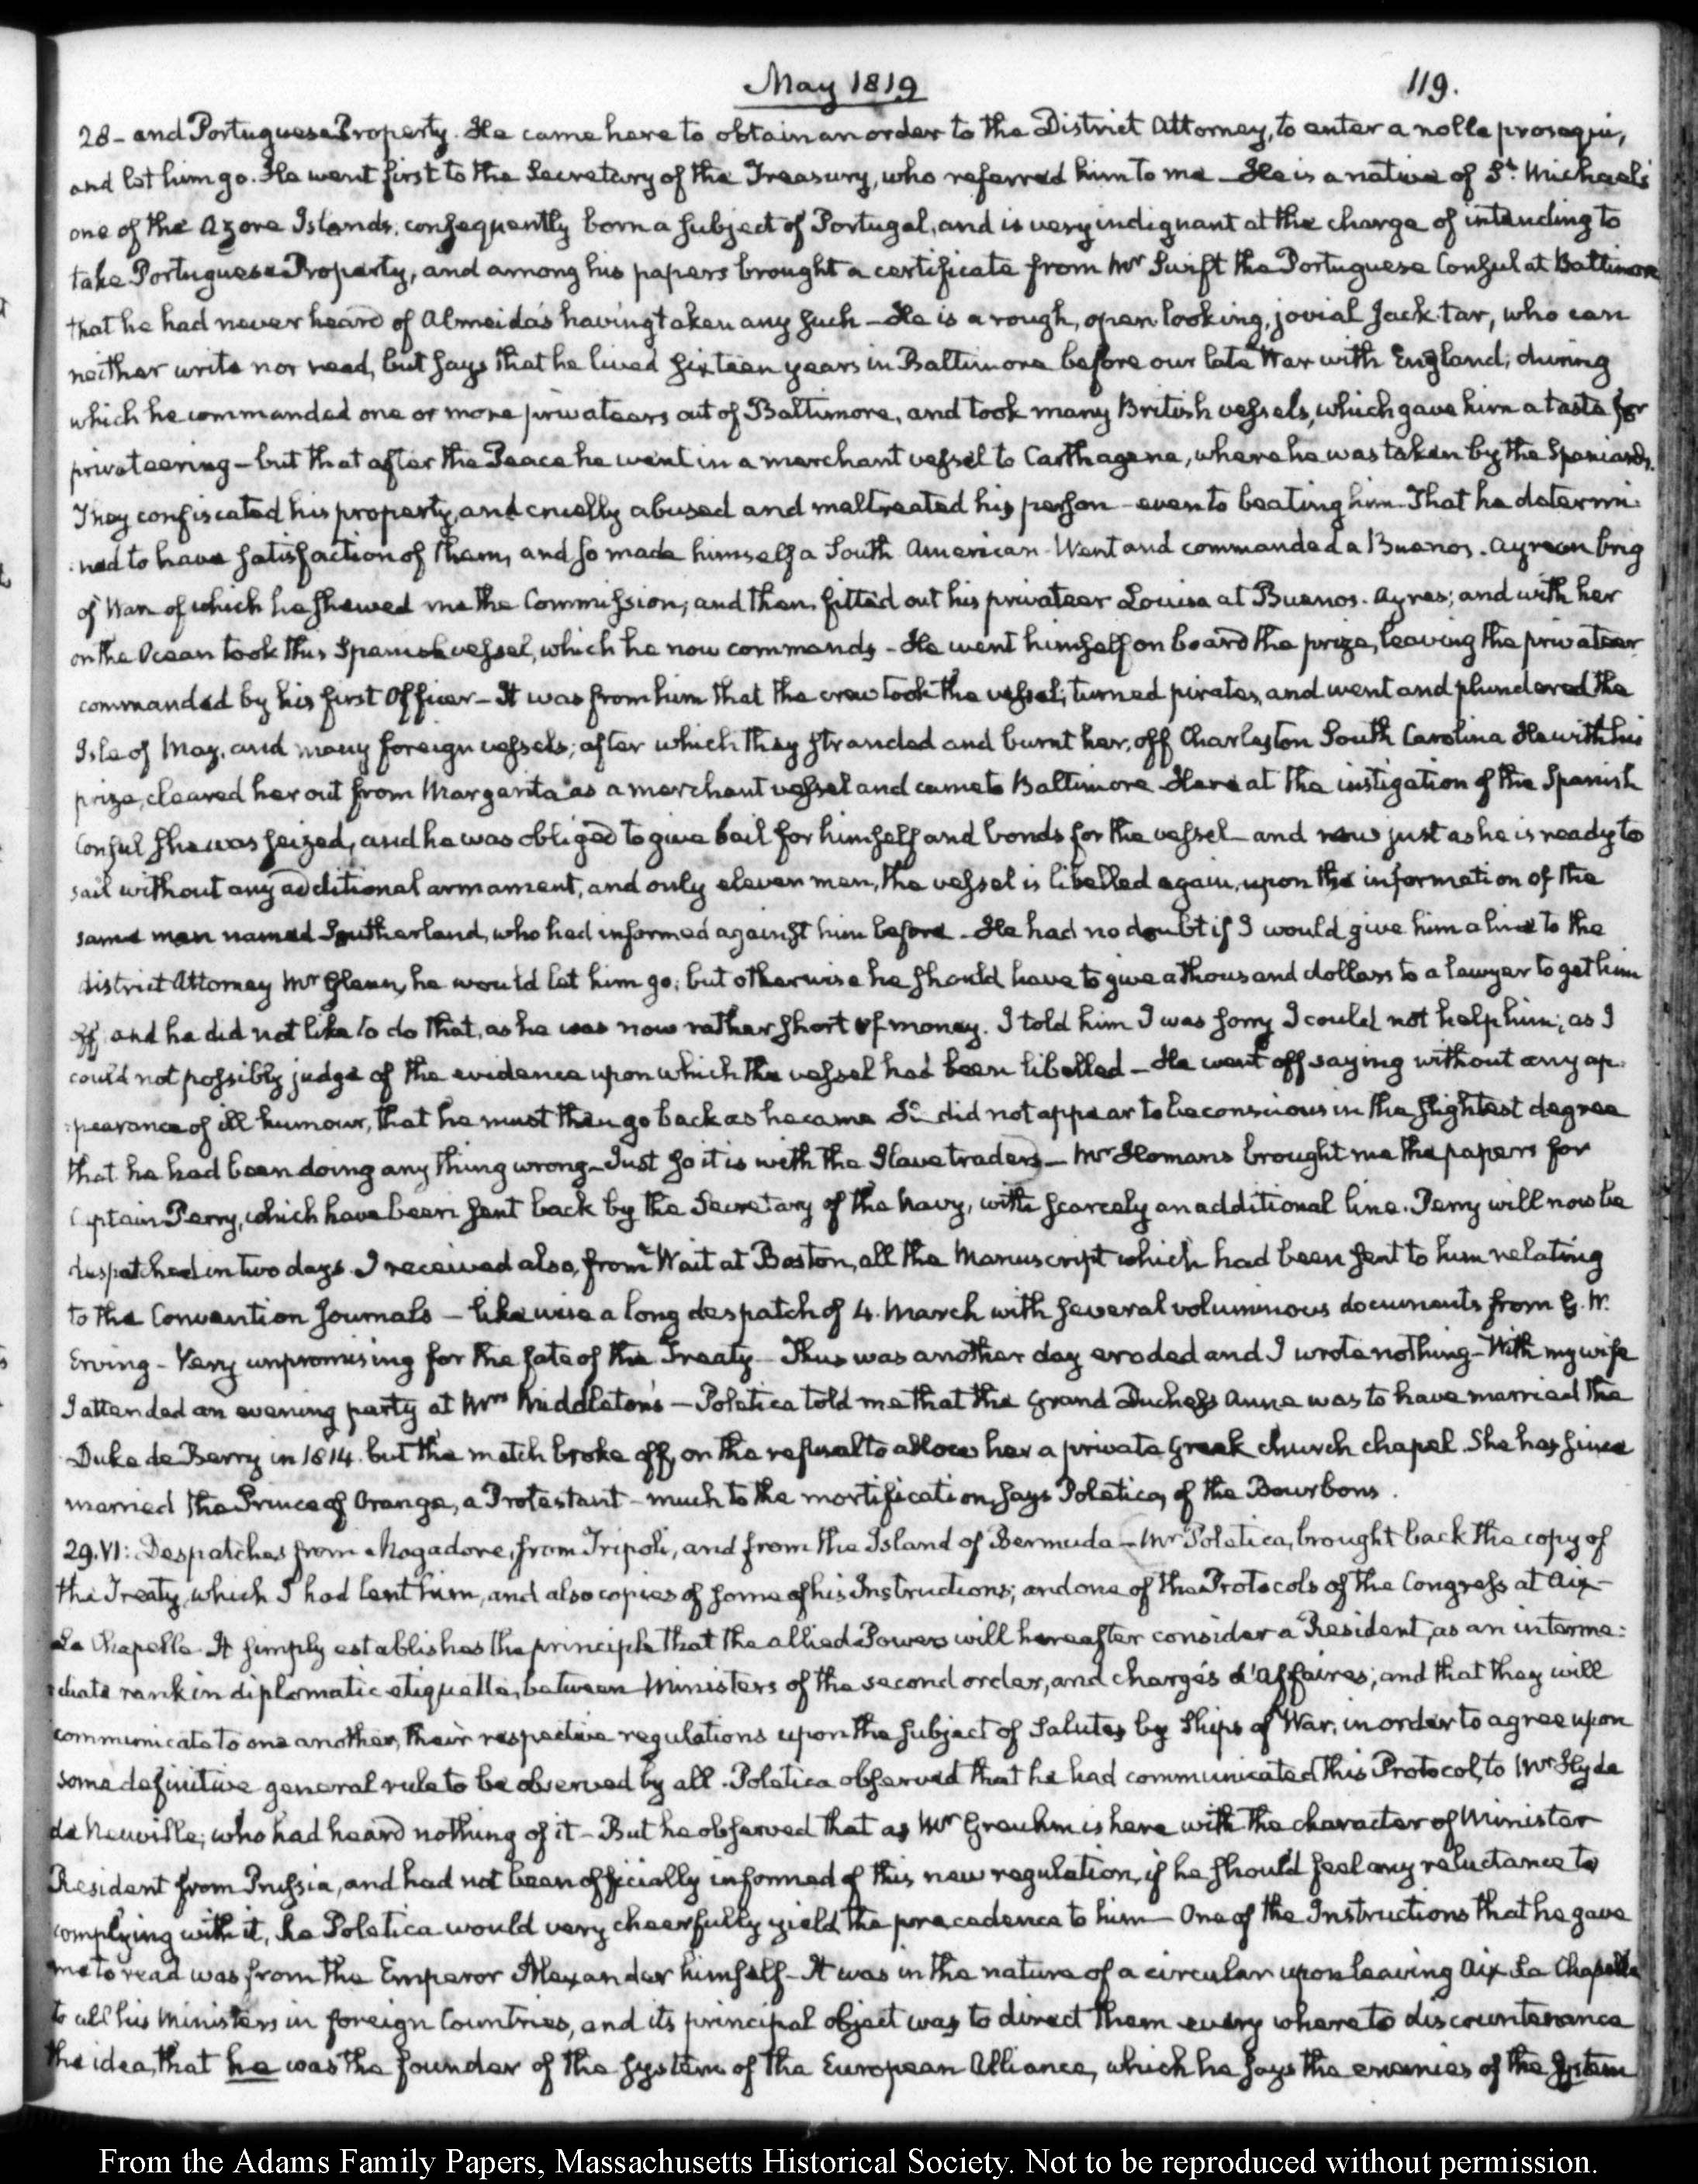 May 1819
119.
28 - and Portuguese Property. He came here to obtain an order to the District Attorney, to enter a nolle prosequi,
and let him go. He went first to the Secretary of the Treasury, who referred him to me - He is a native of St. Michael's
one of the Azore Islands, consequently born a subject of Portugal, and is very indignant at the charge of intending to
take Portuguese Property, and among his papers brought a certificate from Mr Swift the Portuguese Consul at Baltimore
that he had never heard of Almeida's having taken any such - He is a rough, open looking, jovial Jack tar, who can
neither write nor read, but says that he lived sixteen years in Baltimore before our late War with England; during
which he commanded one or more privateers out of Baltimore, and took many British vessels, which gave him a taste for
privateering - but that after the Peace he went in a merchant vessel to Carthagena, where he was taken by the Spaniards.
They confiscated his property, and cruelly abused and maltreated his person - even to beating him - That he determi-
ned to have satisfaction of them, and so made himself a South American - Went and commanded a Buenos-Ayrean brig
of War of which he shewed me the Commission; and then fitted out his privateer Louisa at Buenos-Ayres; and with her
on the Ocean took this Spanish vessel, which he now commands - He went himself on board the prize, leaving the privateer
commanded by his first Officer - It was from him that the crew took the vessel; turned pirates, and went and plundered the
Isle of May, and many foreign vessels; after which they stranded and burnt her, off Charleston South Carolina He with his
prize, cleared her out from Margarita as a merchant vessel and came to Baltimore - Here at the instigation of the Spanish
Consul she was seized, and he was obliged to give bail for himself and bonds for the vessel - and now just as he is ready to
sail without any additional armament, and only eleven men, the vessel is libelled again, upon the information of the
same man named Southerland, who had informed against him before - He had no doubt if I would give him a line to the
district Attorney Mr Glenn, he would let him go; but otherwise he should have to give a thousand dollars to a lawyer to get him
off and he did not like to do that, as he was now rather short of money. I told him I was sorry I could not help him; as I
could not possibly judge of the evidence upon which the vessel had been libelled - He went off saying without any ap-
pearance of ill humour, that he must then go back as he came did not appear to be conscious in the slightest degree
that he had been doing any thing wrong - Just so it is with the Slave traders - Mr Homans brought me the papers for
Captain Perry, which have been sent back by the Secretary of the Navy, with scarcely an additional line. Perry will now be
despatched in two days. I received also, from Wait at Boston, all the Manuscript which had been sent to him relating
to the Convention Journals - likewise a long despatch of 4. March with several voluminous documents from G. W.
Erving - Very unpromising for the fate of the Treaty - Thus was another day eroded and I wrote nothing - With my wife
I attended an evening party at Mrs Middleton's - Poletica told me that the Grand Duchess Anne was to have married the
Duke de Berry in 1814. but the match broke off, on the refusal to allow her a private Greek church chapel. She has since
married the Prince of Orange, a Protestant - much to the mortification, says Poletica, of the Bourbons.
29. VI: Despatches from Mogadore, from Tripoli, and from the Island of Bermuda - Mr Poletica, brought back the copy of
the Treaty, which I had lent him, and also copies of some of his Instructions; and one of the Protocols of the Congress at Aix-
La Chapelle. It simply establishes the principle that the allied Powers will hereafter consider a Resident, as an interme:
diate rank in diplomatic etiquette, between Ministers of the second order, and chargés d'Affaires; and that they will
communicate to one another, their respective regulations upon the subject of Salutes by Ships of War, in order to agree upon
some definitive general rule to be observed by all. Poletica observed that he had communicated this Protocol, to Mr Hyde
de Neuville, who had heard nothing of it - But he observed that as Mr Greuhm is here with the character of Minister
Resident from Prussia, and had not been officially informed of this new regulation, if he should feel any reluctance to
complying with it, he Poletica would very cheerfully yield the precedence to him - One of the Instructions that he gave
me to read was from the Emperor Alexander himself - It was in the nature of a circular upon leaving Aix La Chapelle
to all his Ministers in foreign Countries, and its principal object was to direct them every where to discountenance
the idea, that he was the founder of the system of the European Alliance, which he says the enemies of the System
From the Adams Family Papers, Massachusetts Historical Society. Not to be reproduced without permission.